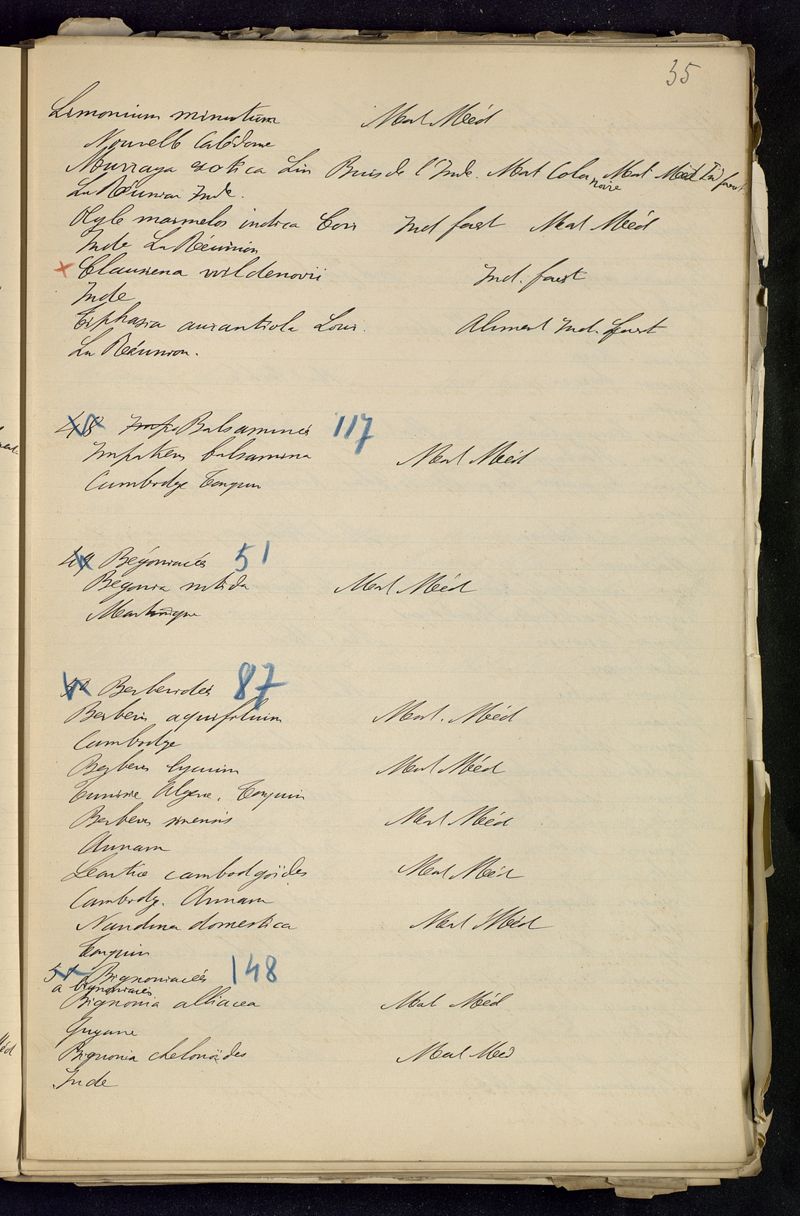 35
Limonium minutum Mat Méd
Nouvelle Calédonie
Murraya exotica Lin Buis de l'Inde. Mat Colo Mat Méd Ind forest
naire
La Réunion Inde.
Ægle marmelos indica Corr Ind forest Mat Méd
Inde La Réunion
x Clausena wildenovii Ind. forest
Inde
Triphasia aurantiola Lour. Aliment Ind. forest
La Réunion.
48 Balsaminées 117
Impatiens balsamina Mat Méd
Cambodge Tonquin
49 Bégoniacées 51
Begonia nitida Mat Méd
Martinique
Berberidées 87
Berberis aquifolium Mat. Méd
Cambodge
Berberis lycium Mat Méd
Tunisie Algérie. Tonquin
Berberis sinensis Mat Méd
Annam
Leontice cambodgoïdes Mat Méd
Cambodg. Annam
Nandina domestica Mat Méd
Tonquin
Bignoniacées 148
a bignoniacées
Bignonia alliacea Mat Méd
Guyane
Bignonia chelonoïdes Mat Med
Inde